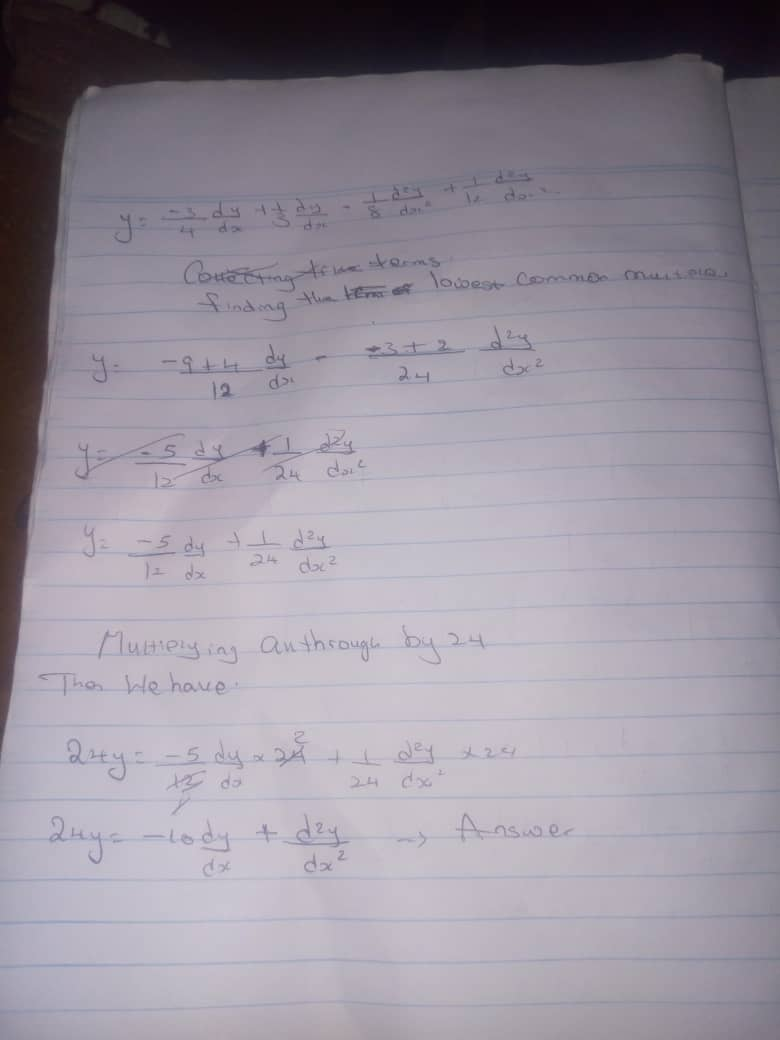 y = -3/4 dy/dx + 1/3 dy/dx - 1/8 d²y/dx² + 1/12 d²y/dx²
Collecting terms
finding the lowest common
y = -9+4/12 dy/dx - -3+2/24 d²y/dx²
y = -5/12 dy/dx + 1/24 d²y/dx²
y = -5/12 dy/dx + 1/24 d²y/dx²
Multiplying allthrough by 24
Then We have.
24y = -5/12 dy/dx × 24 2 + 1/24 d²y/dx² × 24
24y = -10 dy/dx + d²y/dx² → Answer